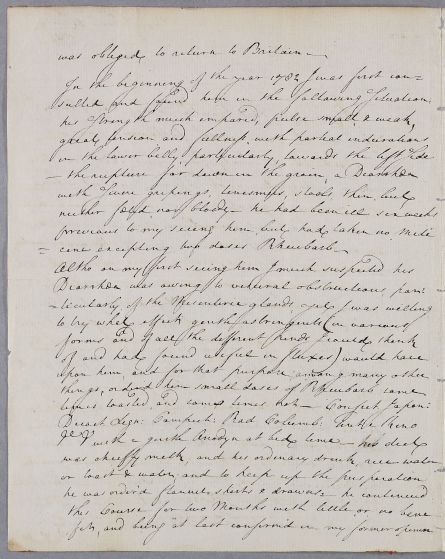 was obliged to return to Britain —
In the beginning of the year 1782 I was first con=
sulted and found him in the following Situation,
his strength much impaired, pulse small & weak,
great tension and fullness with partial indurations
in the lower belly particularly towards the left side
— the rupture far down in the groin, a Diarrhœa
with severe gripings, tenesmus, stools thin, but
neither fœtid nor bloody — he had been ill six weeks
previous to my seeing him, but had taken no medi
= cine excepting two doses Rheubarb —
Altho on my first seeing him I much suspected his
Diarrhœa was owing to visceral obstructions, par=
=ticularly of the Mesenteric glands, yet I was willing
to try what effects gentle astringents (in various
forms and of all the different kinds I could think
of and had found useful in fluxes) would have
upon him and for that purpose among many other
things, ordered him small doses of Rheubarb some
times toasted, and some times not — Confect Japon:
Decoct Lign: Campech: Rad Columb: Kino
&c with a gentle Anodyn at bed time — his diet
was chiefly milk, and his ordinary drink, rice water
or toast & water, and to keep up the perspiration
he was order'd flannel shirts & drawers — he continued
this Course for two Months with little or no bene
fit, and being at last confirm'd in my former opinion